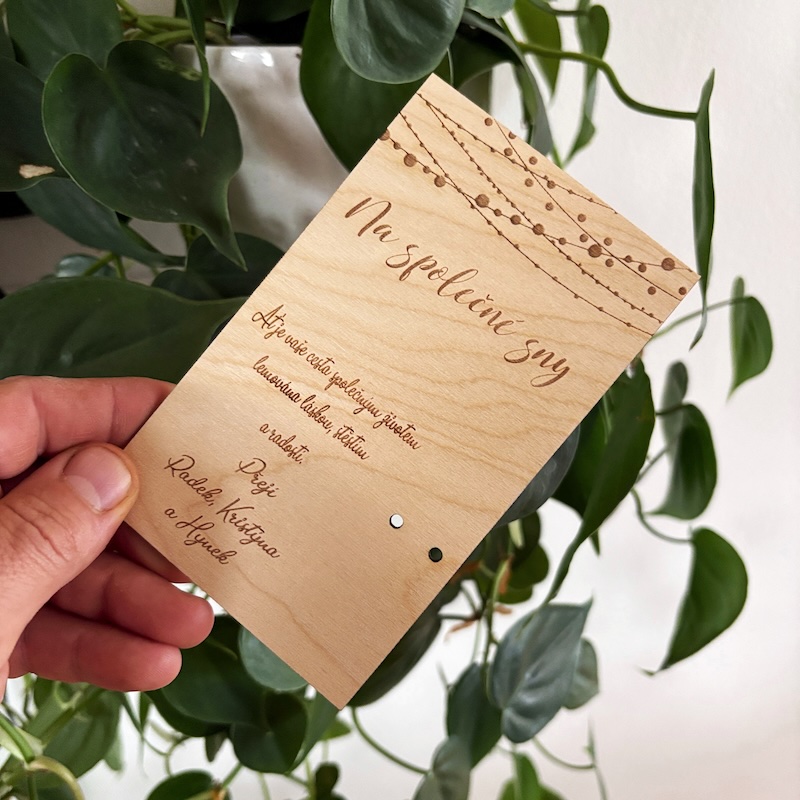 Na společné sny
Ať je vaše cesta společným životem
lemována láskou, štěstím
a radostí.
Přejí
Radek, Kristýna
a Hynek